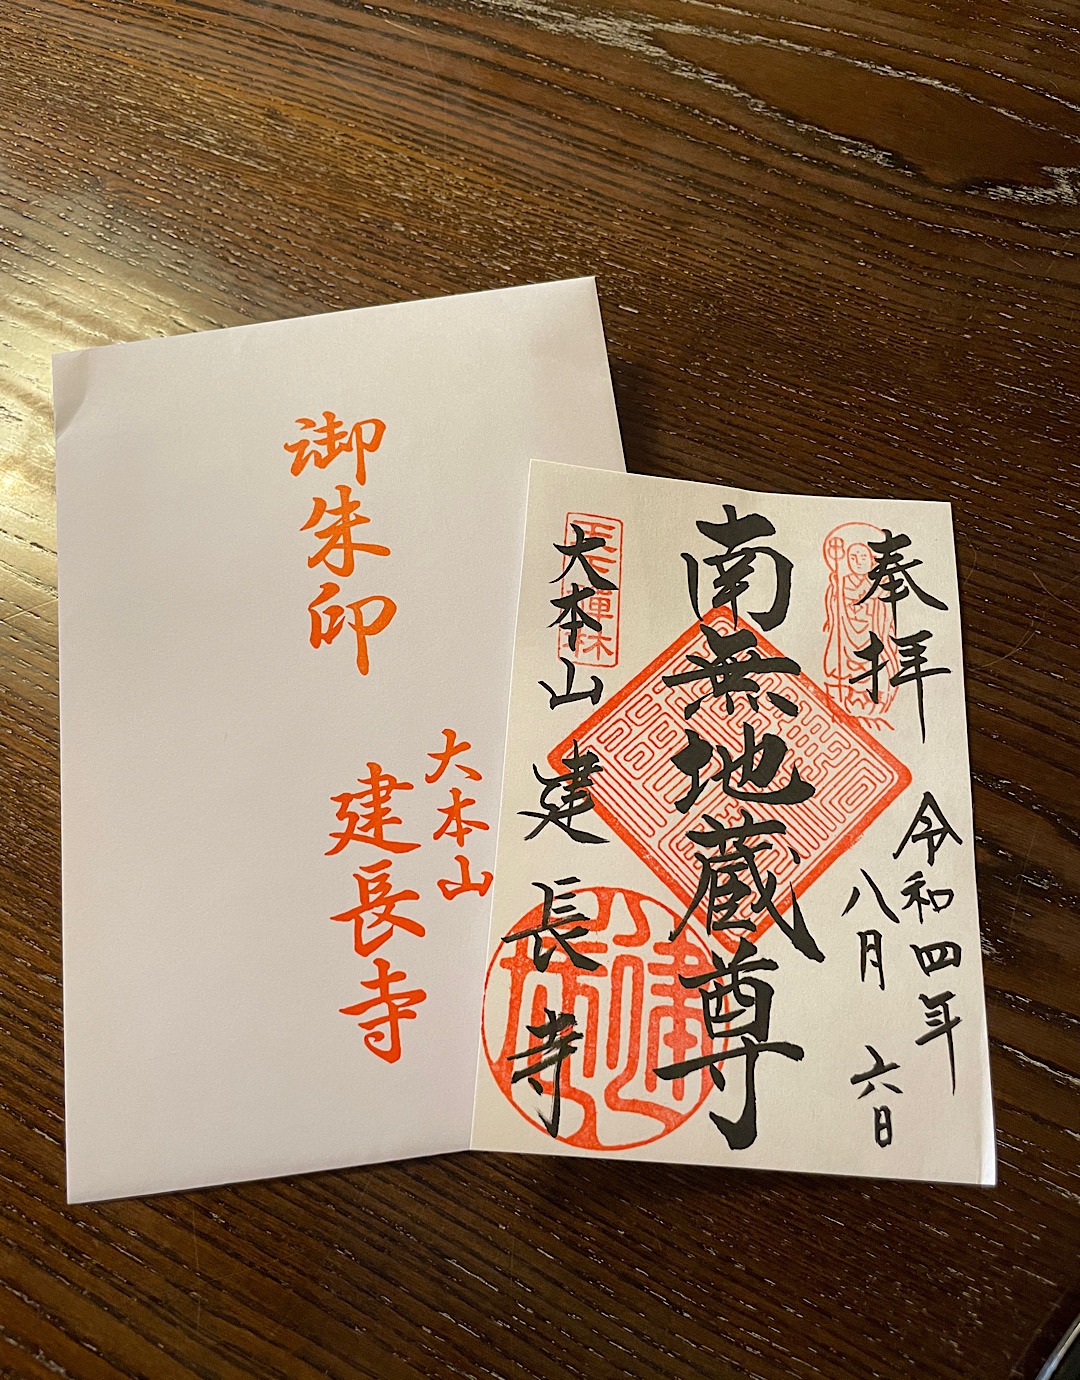 御朱印
大本山
建長寺
奉拝
令和四年
八月六日
南無地蔵尊
大本山建長寺